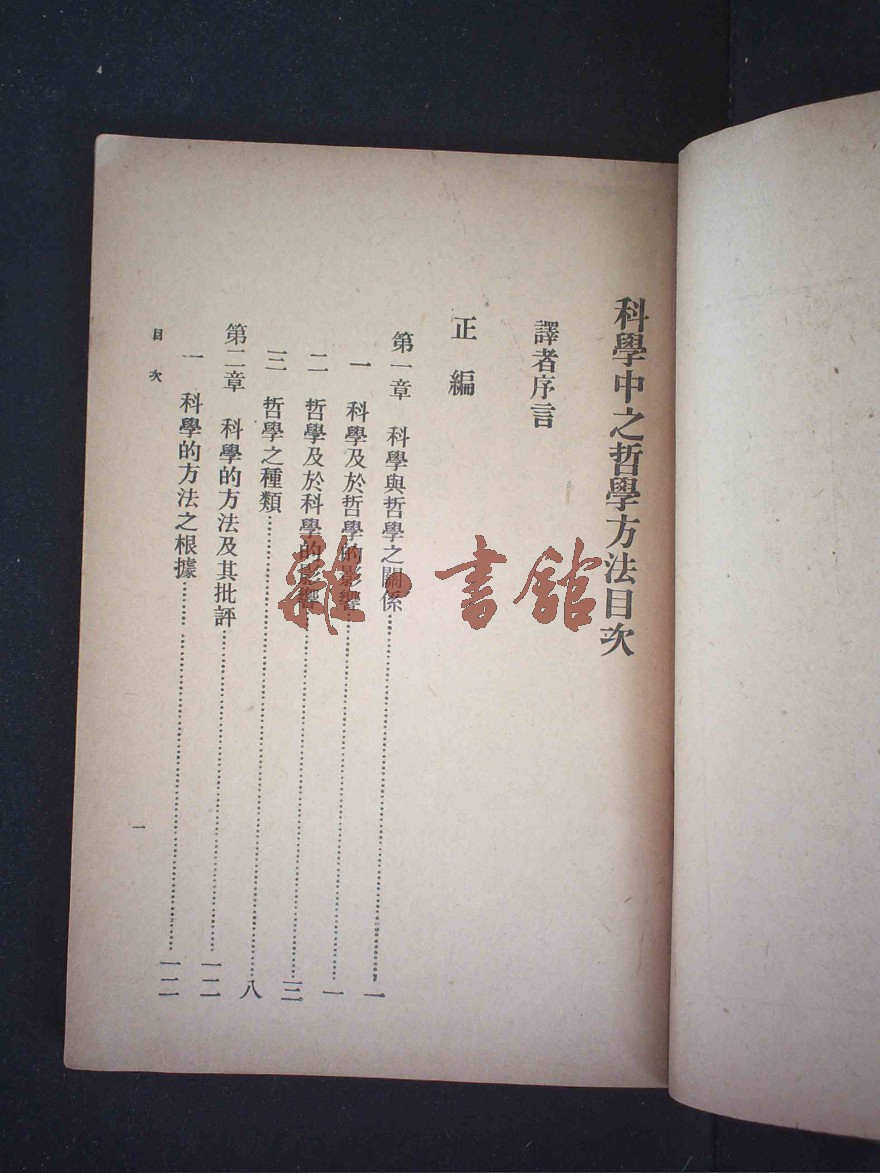 科學中之哲學方法目次
譯者序言
正編
第一章 科學與哲學之關係……一
一 科學及於哲學的影響……一
二 哲學及於科學的影響……三
三 哲學之種類……八
第二章 科學的方法及其批評……一二
一 科學的方法之根據……一二
目次
一
雜書館